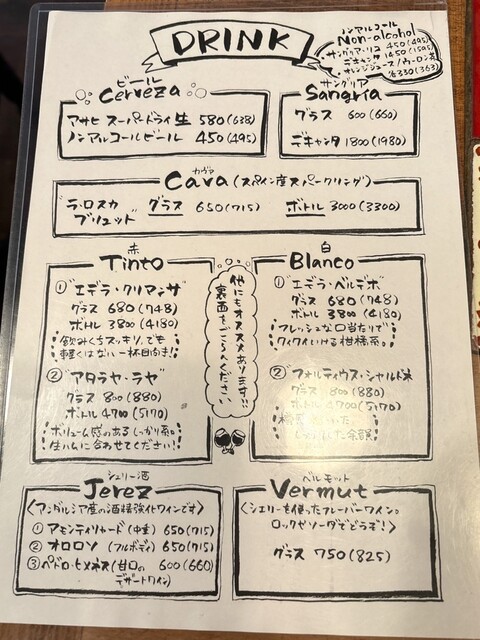 DRINK
ノンアルコール
Non-alcohol
サングリア・リコ 450(495)
デキャンタ 1450(1595)
オレンジジュース/ウーロン茶
各330(363)
ビール
Cerveza
アサヒ スーパードライ 生 580(638)
ノンアルコールビール 450(495)
サングリア
Sangria
グラス 600(660)
デキャンタ 1800(1980)
カヴァ
Cava(スペイン産スパークリング)
"ラ・ロスカ ブリュット" グラス 650(715) ボトル 3000(3300)
赤
Tinto
①"エデラ・クリアンサ"
グラス 680(748)
ボトル 3800(4180)
飲みくちスッキリ、でも
軽くはない一杯目向き!
②"アタラヤ・ラヤ"
グラス 800(880)
ボトル 4700(5170)
ボリューム感のあるしっかり系。
生ハムに合わせてください!
他にもオススメあります!!
裏面をごらんください。
白
Blanco
①"エデラ・ベルデホ"
グラス 680(748)
ボトル 3800(4180)
フレッシュな口当たりで
グイグイいける柑橘系。
②"フォルティウス・シャルドネ"
グラス 800(880)
ボトル 4700(5170)
しっかりした余韻
シェリー酒
Jerez
〈アンダルシア産の酒精強化ワインです〉
①アモンティリャード(中辛) 650(715)
②オロロソ(フルボディ) 650(715)
③ペドロ・ヒメネス(甘口の 600(660)
デザートワイン)
ベルモット
Vermut
〈シェリーを使ったフレーバーワイン。
ロックかソーダでどうぞ!〉
グラス 750(825)